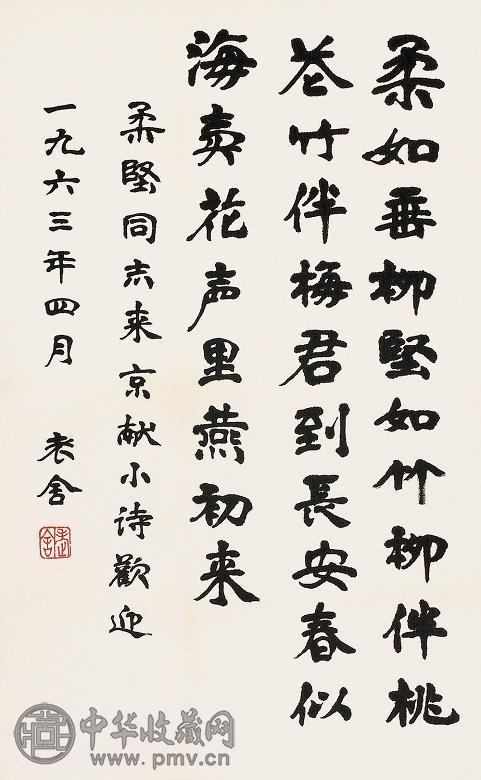 柔如垂柳堅如竹柳伴桃
花竹伴梅君到長安春似
海賣花声里燕初来
柔堅同志来京献小诗歡迎
一九六三年四月 老舍
老舍
中华收藏网
www.pmv.cn